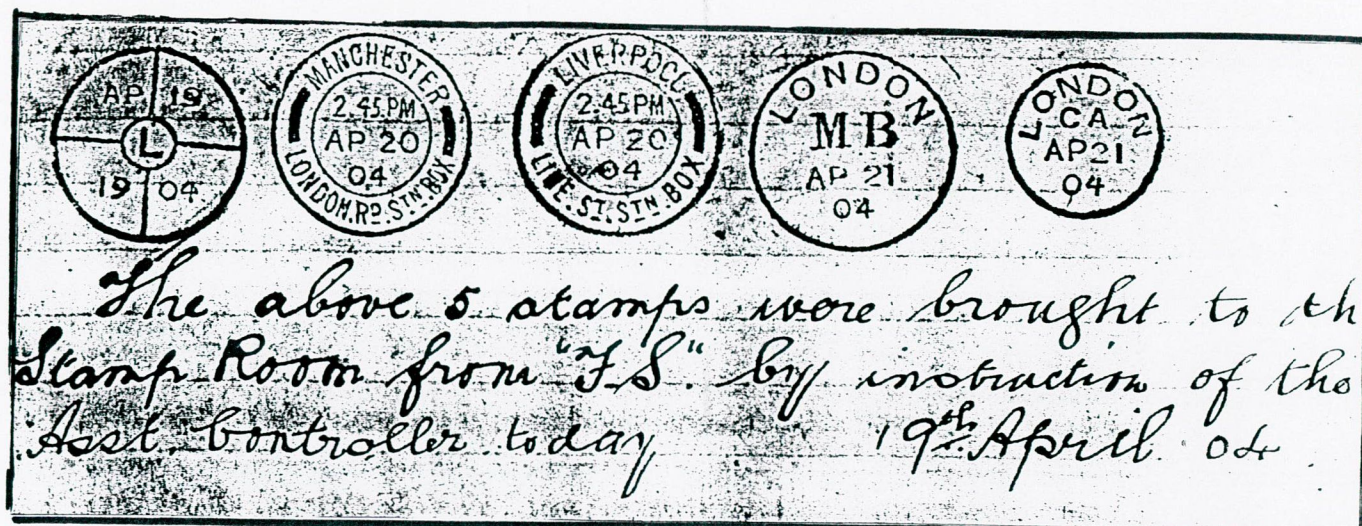 AP 19
L
19 04
MANCHESTER
2.45 PM
AP 20
04
LONDON.RD.STN.BOX
LIVERPOOL
2.45 PM
AP 20
04
LIME.ST.STN.BOX
LONDON
MB
AP 21
04
LONDON
CA
AP 21
04
The above 5 stamps were brought to th
Stamp Room from "F.S." by instruction of the
Asst. Controller today 19th April. 04